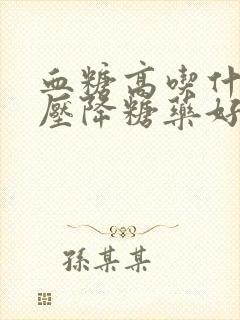 血糖高喫什
壓降糖藥好
孫某某